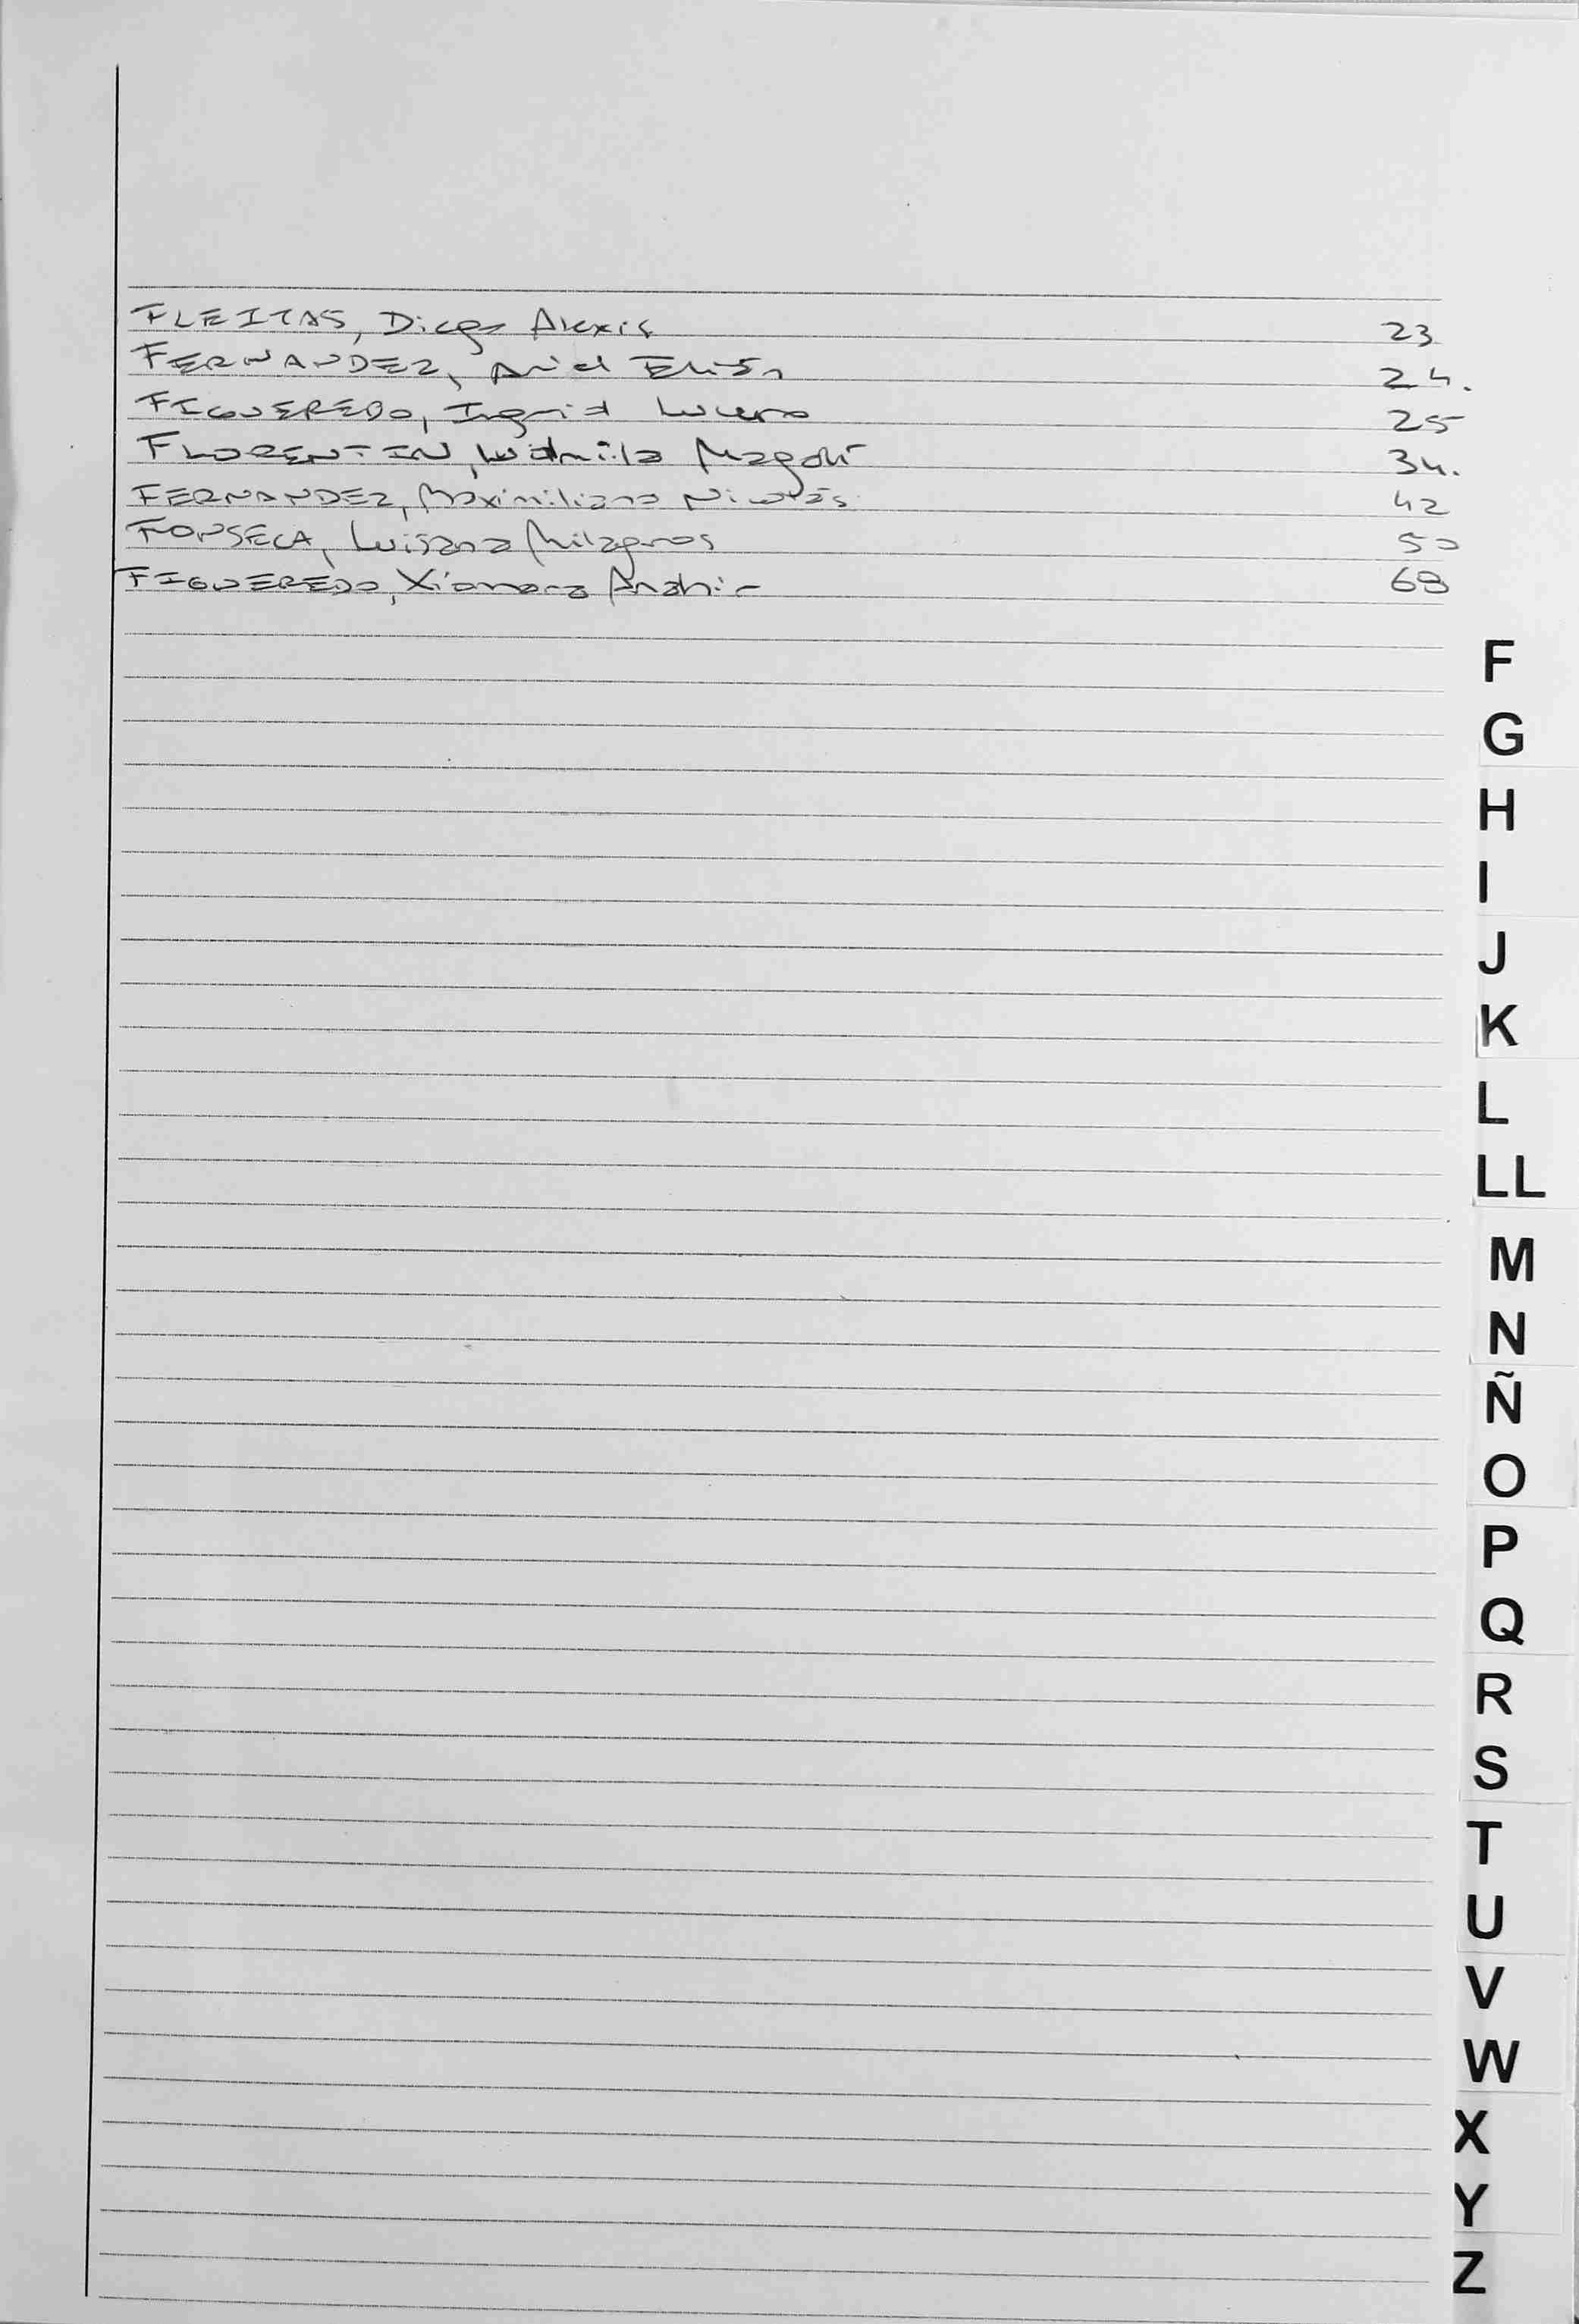 FLEITAS, Diego Alexis 23
FERNANDEZ, Ariel 24.
FIGUEREDO, Ingrid Lucero 25
FLORENTIN, Ludmila Magalí 34.
FERNANDEZ, Maximiliano Nicolás 42
FONSECA, Luisana Milagros 50
FIGUEREDO, Xiomara Anahir 68
F
G
H
I
J
K
L
LL
M
N
Ñ
O
P
Q
R
S
T
U
V
W
X
Y
Z